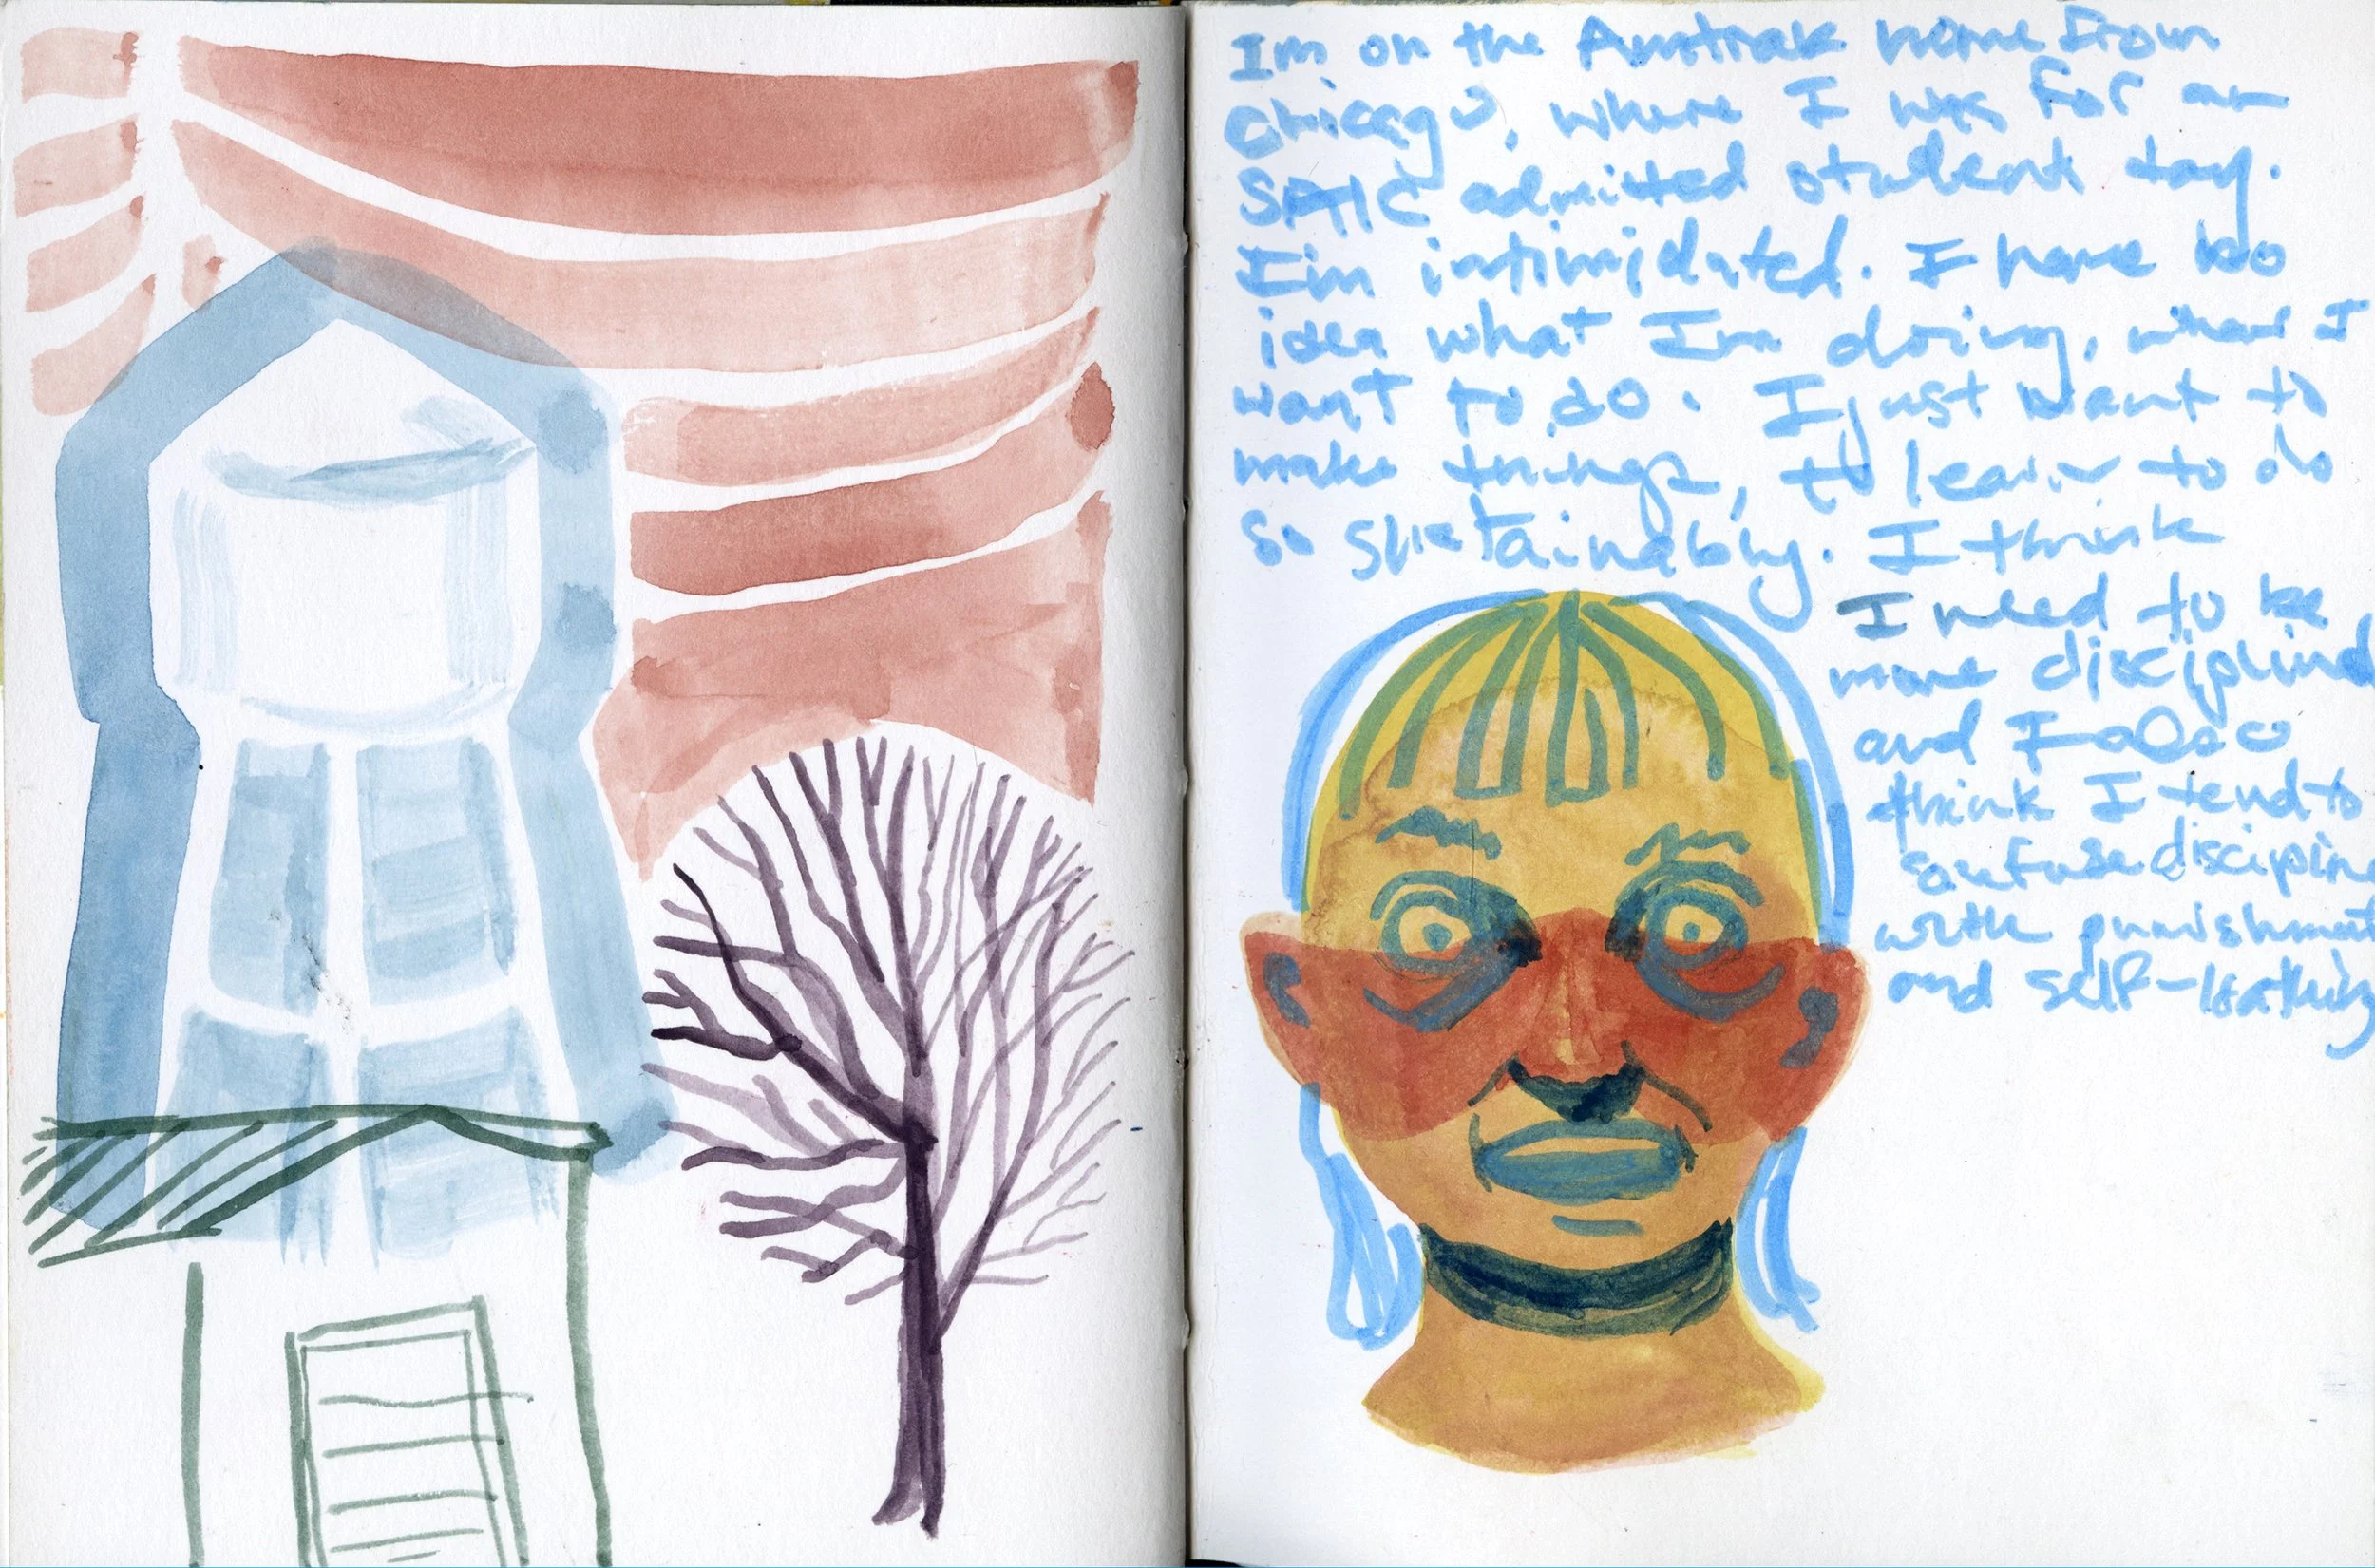 Im on the Amtrak home from
Chicago, where I was for an
SAIC admitted student day.
I'm intimidated. I have no
idea what I'm doing, what I
want to do. I just want to
make things, to learn to do
so sustainably. I think
I need to be
more disciplined
and I also
think I tend to
confuse discipline
with punishment
and self-loathing